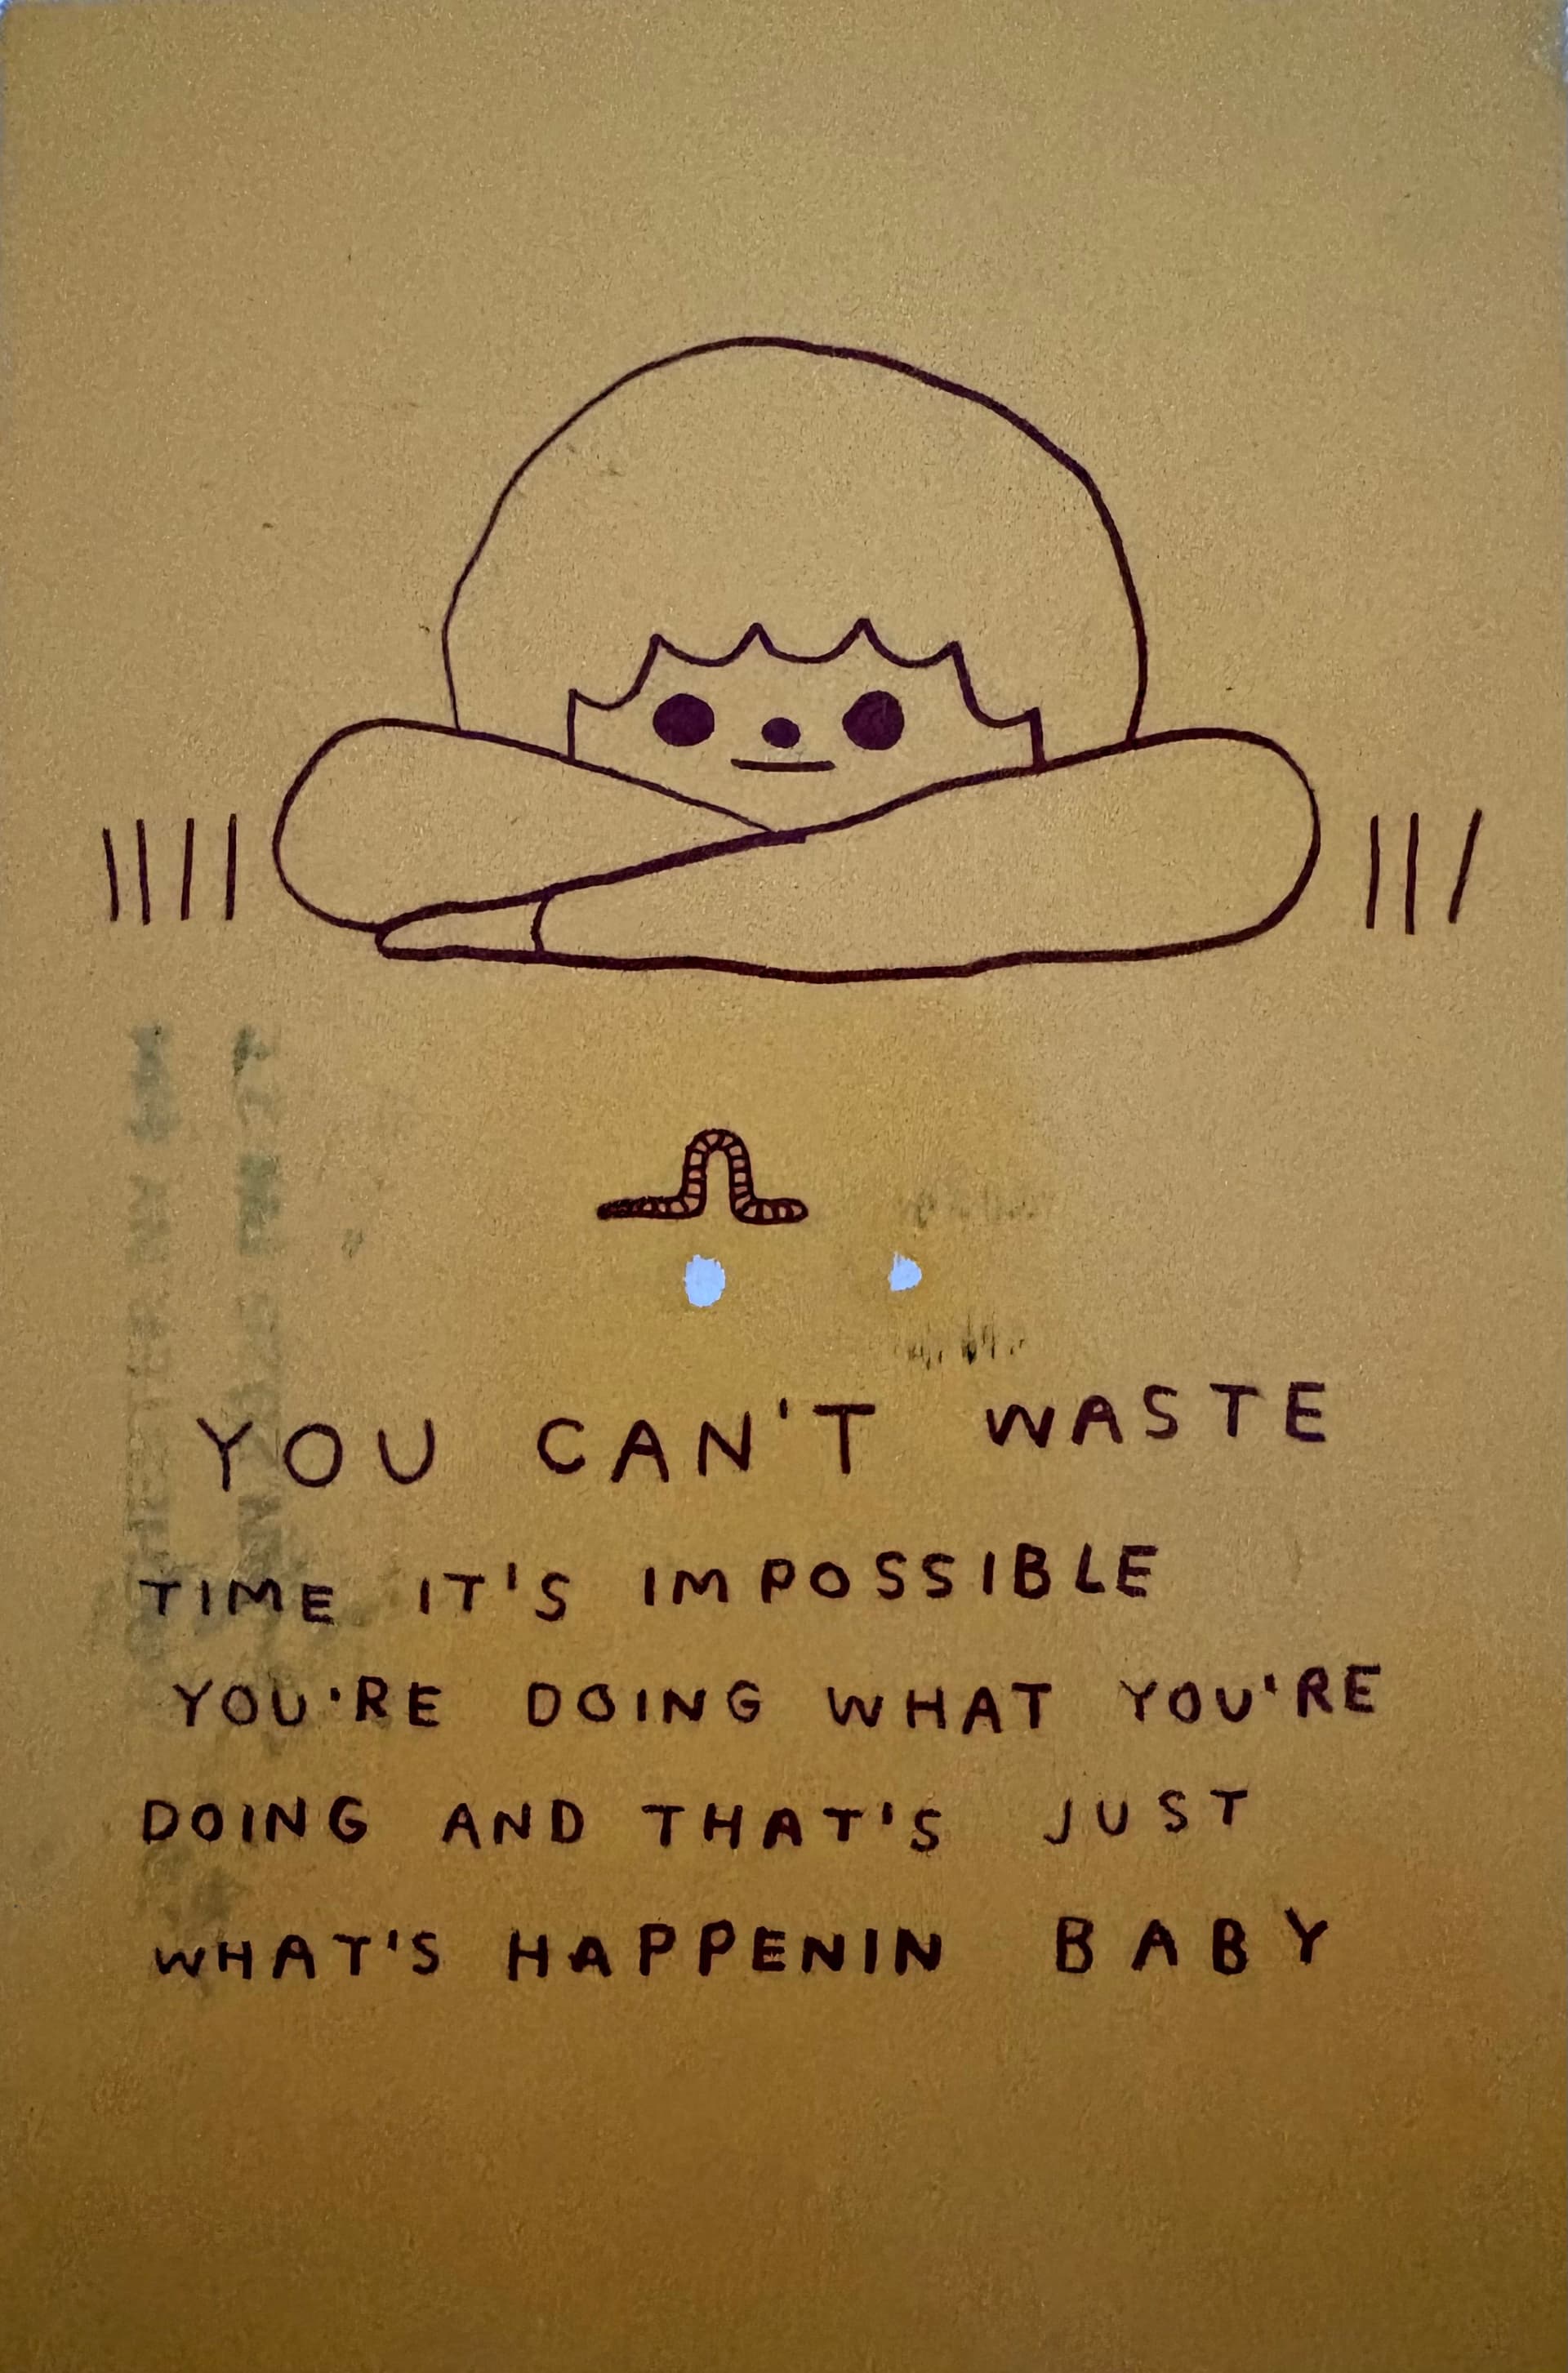 YOU CAN'T WASTE
TIME IT'S IMPOSSIBLE
YOU'RE DOING WHAT YOU'RE
DOING AND THAT'S JUST
WHAT'S HAPPENIN BABY